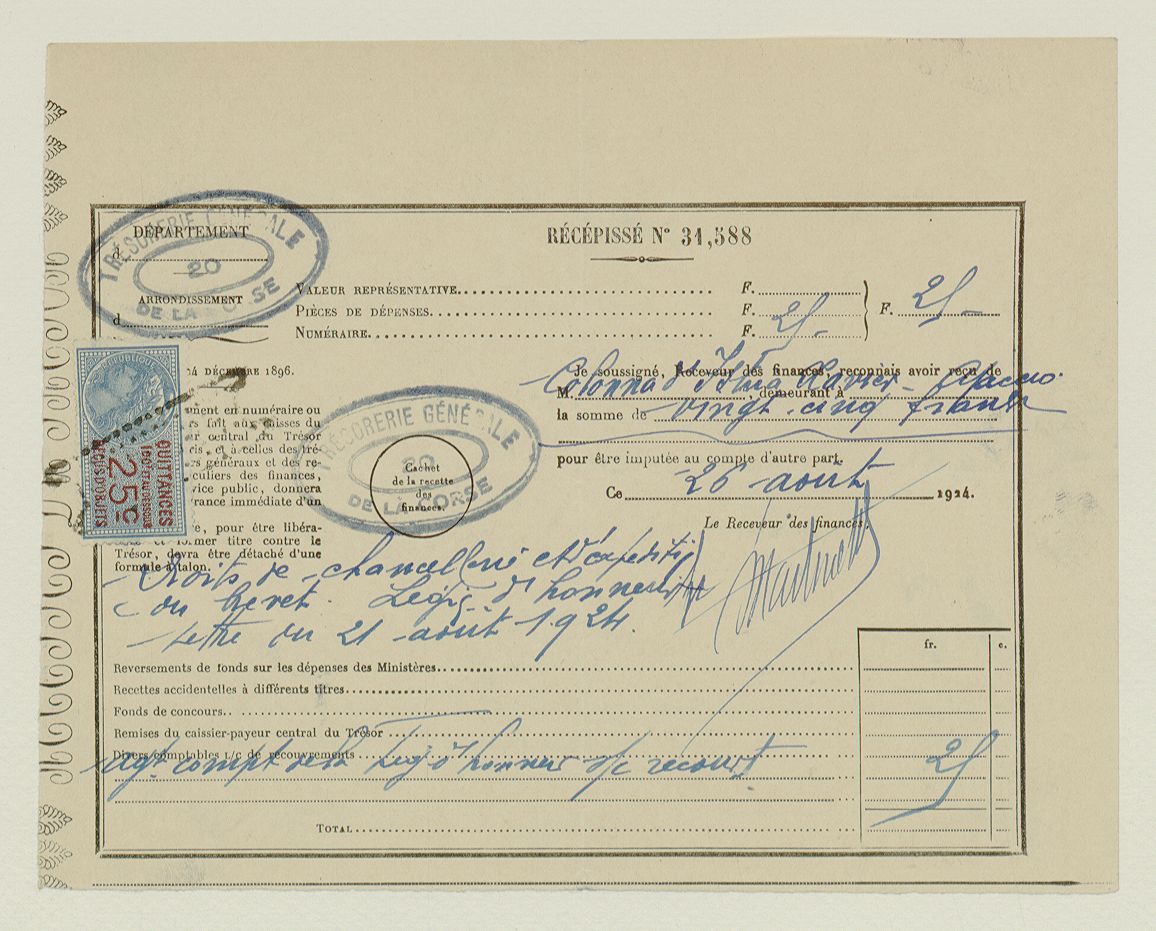 TRÉSORERIE GÉNÉRALE
20
DE LA CORSE
DÉPARTEMENT
d
ARRONDISSEMENT
d
RÉCÉPISSÉ N° 31,588
VALEUR REPRÉSENTATIVE F.
PIÈCES DE DÉPENSES. F. 25 - F. 25 -
NUMÉRAIRE. F.
24 DÉCEMBRE 1896.
ment en numéraire ou
rs fait aux caisses du
ur central du Trésor
ris, et à celles des tré-
rs généraux et des re-
culiers des finances,
vice public, donnera
rance immédiate d'un
e, pour être libéra-
former titre contre le
Trésor, devra être détaché d'une
formule à talon.
RÉPUBLIQUE
QUITTANCES
REÇUS D'OBJETS
25c
TRÉSORERIE GÉNÉRALE
20
DE LA CORSE
Cachet
de la recette
des
finances.
Je soussigné, Receveur des finances, reconnais avoir reçu de
M. Colonna d'Istria Xavier, demeurant à Ajaccio
la somme de vingt-cinq francs
pour être imputée au compte d'autre part.
Ce 26 août 1924.
Le Receveur des finances,
Droits de chancellerie et d'expédition
du brevet. Légion d'honneur
Lettre du 21 août 1924.
fr. c.
Reversements de fonds sur les dépenses des Ministères.
Recettes accidentelles à différents titres.
Fonds de concours.
Remises du caissier-payeur central du Trésor
Divers comptables L/C de recouvrements
Agt compt de la Lég d'honneur s/c recouvt 25
TOTAL